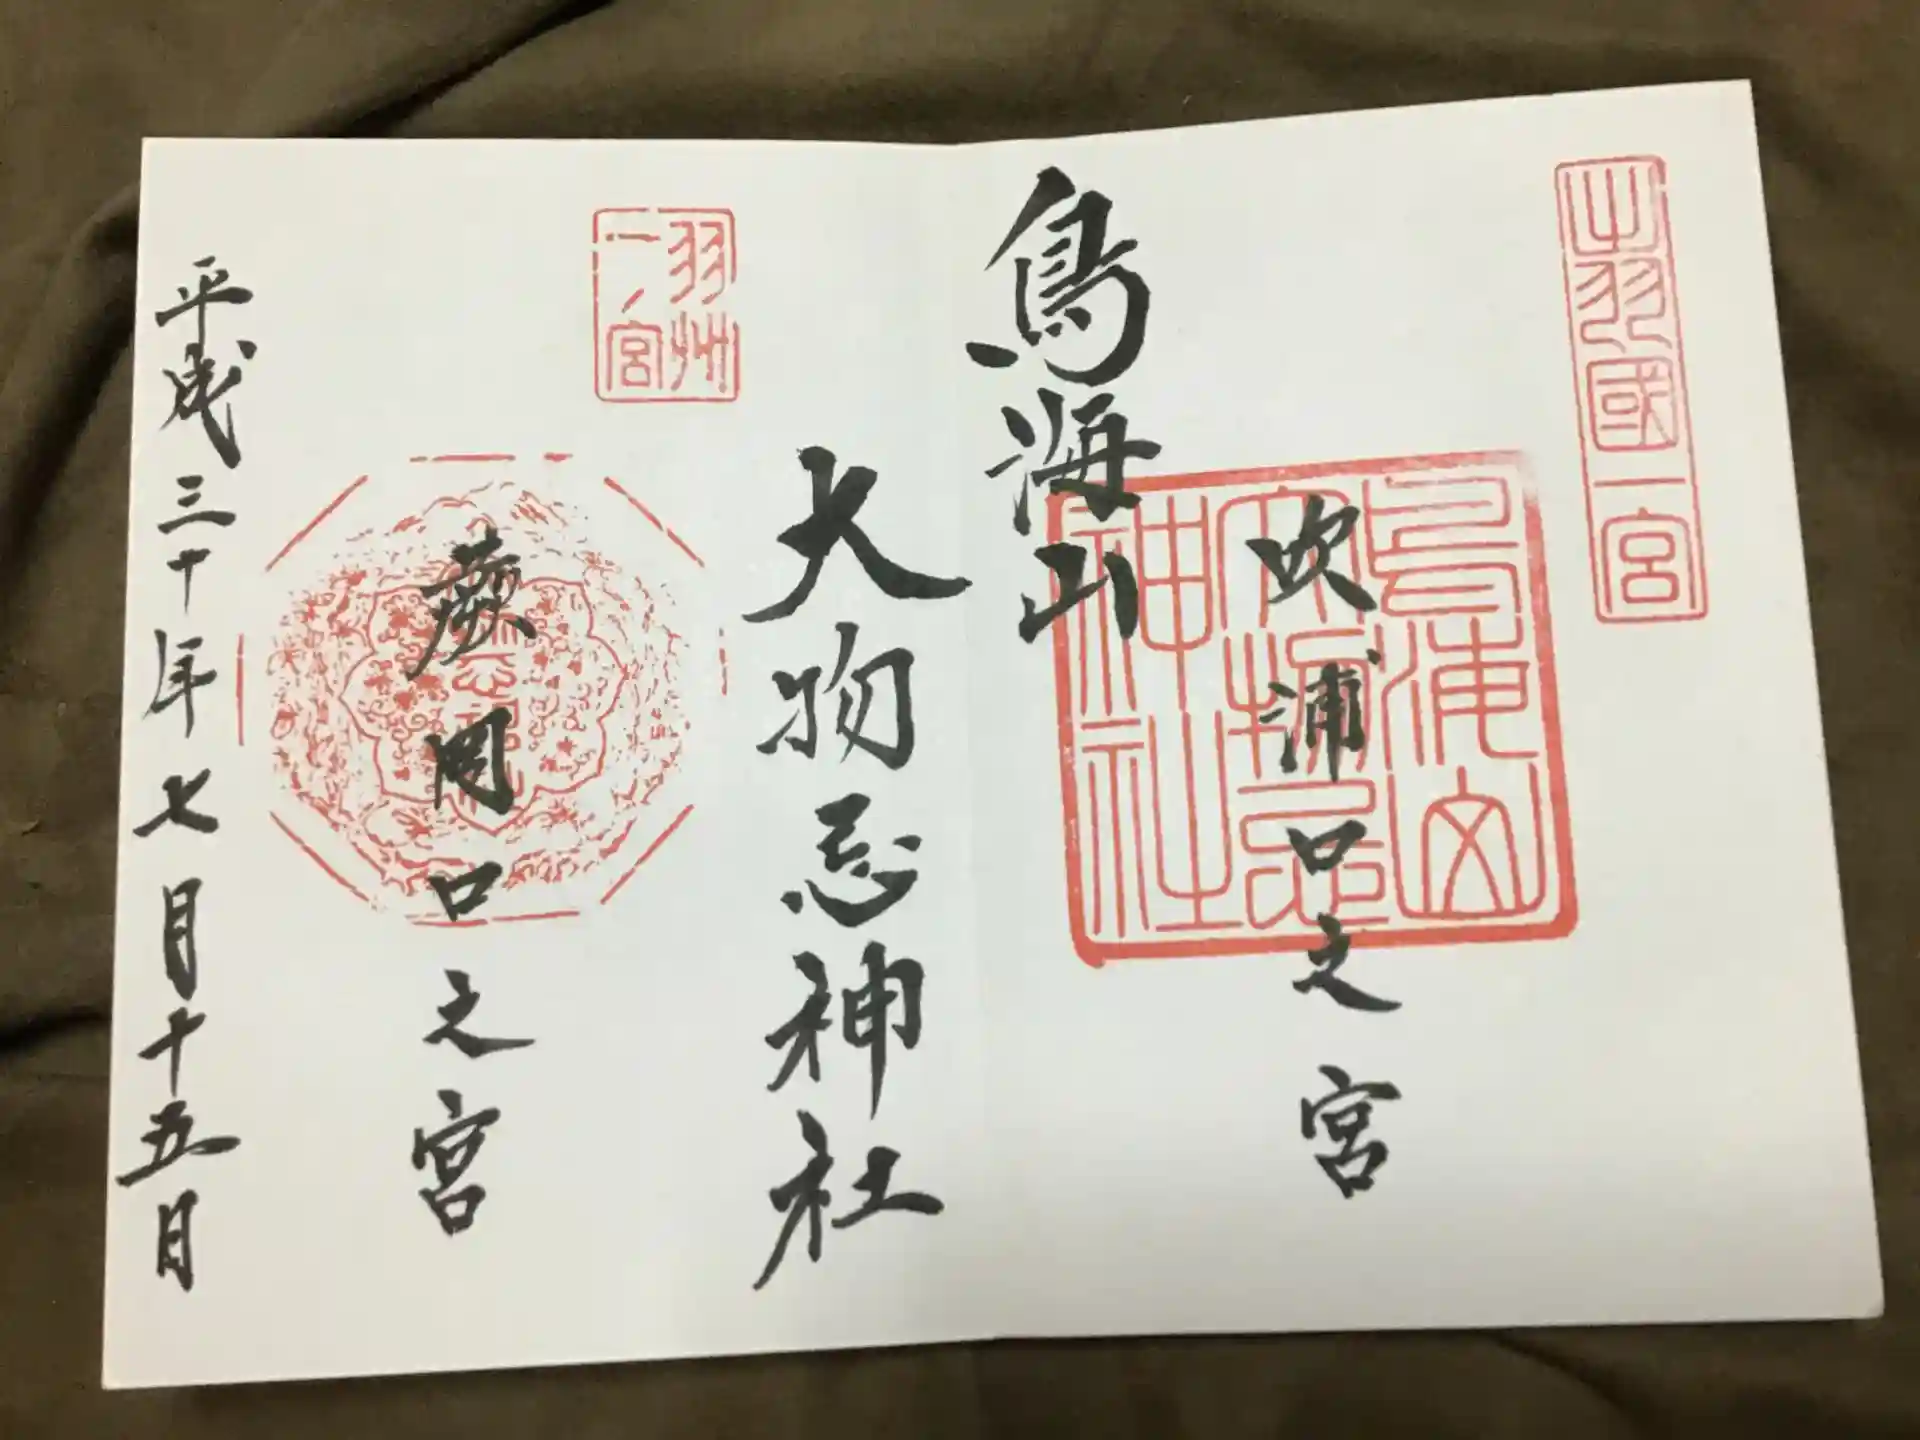 出羽國一宮
吹浦口之宮
鳥海山大物忌神社
鳥海山
大物忌
神社
羽州
一ノ宮
蕨岡口之宮
平成三十年七月十五日